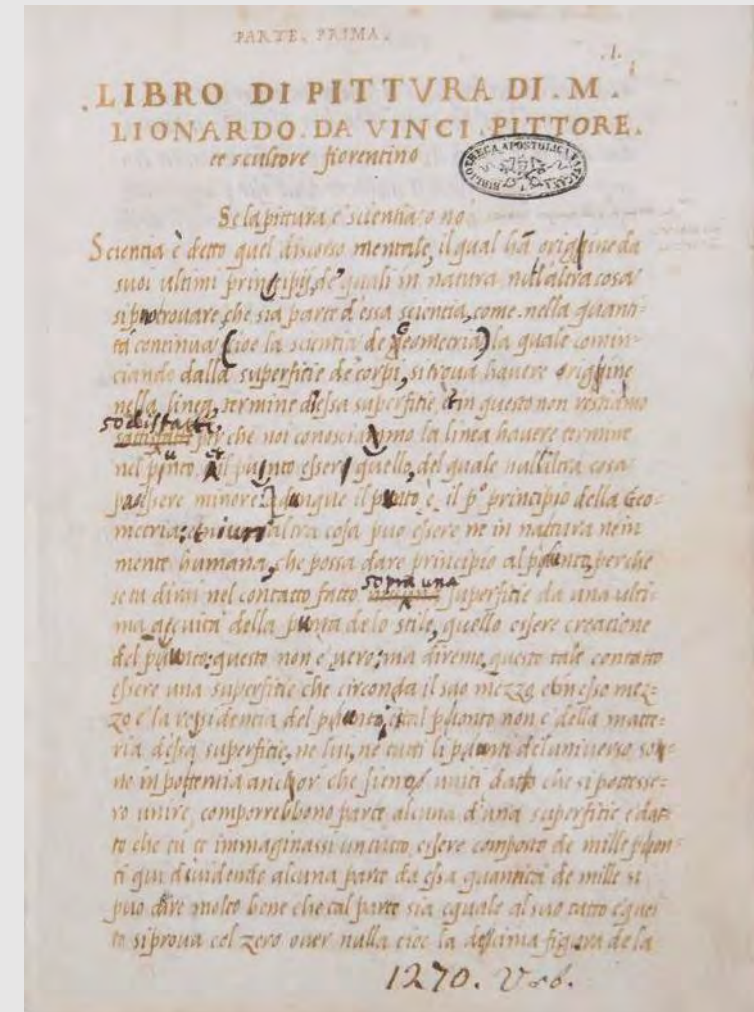 PARTE. PRIMA.
.1.
.LIBRO DI PITTVRA DI. M.
LIONARDO. DA VINCI. PITTORE.
et scultore fiorentino
BIBLIOTHECA APOSTOLICA VATICANA
Se la pittura è scientia o no
Scientia è detto quel discorso mentale, il qual hà origine da
suoi ultimi principij, de quali in natura null'altra cosa
si può trouare, che sia parte d'essa scientia, come nella quanti-
tà continua (cioe la scientia de Geometria) la quale comin-
ciando dalla superfitie de corpi, si troua hauere origine
nella linea, termine d'essa superfitie, & in questo non restiamo
sodisfatti, perche noi conosciamo la linea hauere termine
nel punto, et il punto essere quello, del quale null'altra cosa
può essere minore. adunque il punto è il pº principio della Geo-
metria: et niuna altra cosa puo essere ne in natura ne in
mente humana, che possa dare principio al punto, perche
se tu dirai nel contatto fatto sopra una superfitie da una ulti-
ma accuità della punta de lo stile, quello essere creatione
del punto: questo non è uero: ma diremo, questo tale contatto
essere una superfitie che circonda il suo mezzo et in esso mez-
zo è la residentia del punto, e tal punto non è della matte-
ria d'essa superfitie, ne lui, ne tutti li punti del uniuerso so-
no in pottentia anchor che sieno uniti dato che si pottesse-
ro unire, comporrebbono parte alcuna d'una superfitie e dat-
to che tu te immaginassi un tutto essere composto de mille pon-
ti qui diuidendo alcuna parte da essa quantità de mille si
può dire molto bene che tal parte sia eguale al suo tutto e que-
to si proua col zero ouer nulla cioe la decima figura de la
1270. Urb.